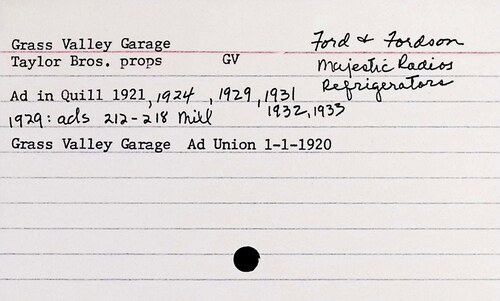 Grass Valley Garage Ford & Fordson
Taylor Bros. props GV Majestic Radios
Refrigerators
Ad in Quill 1921, 1924, 1929, 1931
1932, 1933
1929: ads 212-218 Mill
Grass Valley Garage Ad Union 1-1-1920